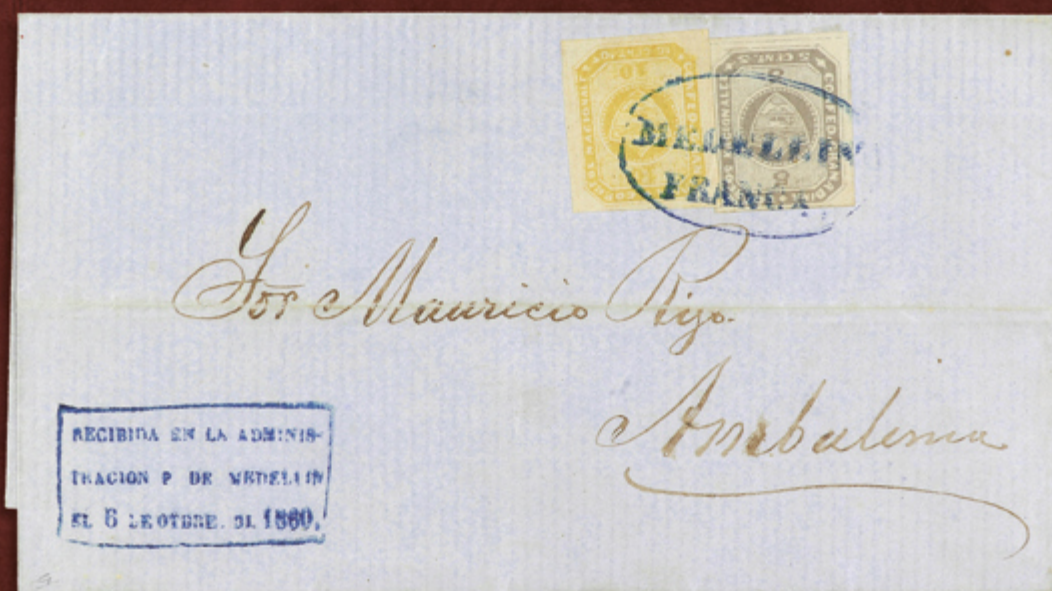 MEDELLIN
FRANCA
Sor Mauricio Rijo.
Ambalema
RECIBIDA EN LA ADMINIS-
TRACION P DE MEDELLIN
EL 6 DE OTBRE. DE 1860,